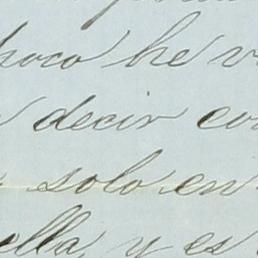 poco he v
decir co
solo en
ella, y es